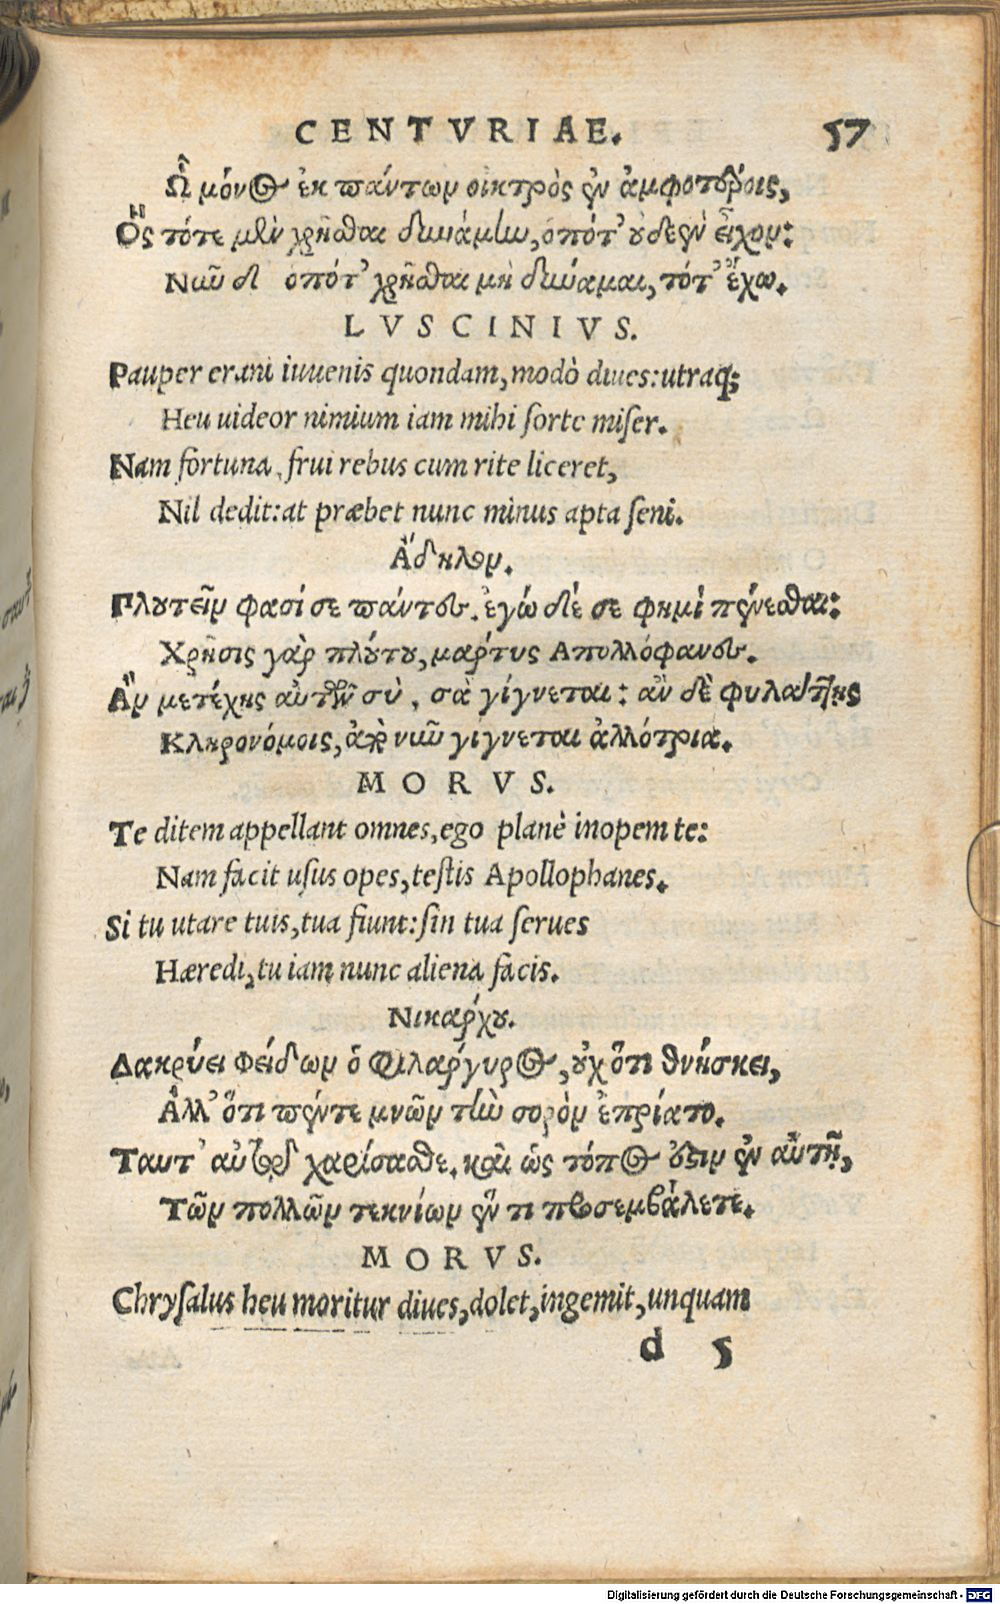 CENTVRIAE. 57
Ὢ μόνος ἐκ πάντων οἰκτρὸς ἐν ἀμφοτέροις,
Ὃς τότε μὲν χρῆσθαι δυνάμην, ὁπότ' οὐδὲν εἶχον:
Νῦν δ' ὁπότ' χρῆσθαι μὴ δύναμαι, τότ' ἔχω.
LVSCINIVS.
Pauper erani iuuenis quondam, modò diues: utraq;
Heu uideor nimium iam mihi sorte miser.
Nam fortuna, frui rebus cum rite liceret,
Nil dedit: at præbet nunc minus apta seni.
Ἄδηλον.
Πλουτεῖν φασί σε πάντες. ἐγώ δέ σε φημὶ πένεσθαι:
Χρῆσις γὰρ πλούτου, μάρτυς Απολλόφανες.
Ἂν μετέχῃς αὐτῶν σὺ, σὰ γίγνεται: ἂν δὲ φυλάττῃς
Κληρονόμοις, ἀπὸ νῦν γίγνεται ἀλλότρια.
MORVS.
Te ditem appellant omnes, ego planè inopem te:
Nam facit usus opes, testis Apollophanes.
Si tu utare tuis, tua fiunt: sin tua serues
Hæredi, tu iam nunc aliena facis.
Νικάρχου.
Δακρύει Φείδων ὁ φιλάργυρος, οὐχ ὅτι θνήσκει,
Ἀλλ' ὅτι πέντε μνῶν τὴν σορὸν ἐπρίατο.
Ταυτ' αὐτῷ χαρίσασθε. καὶ ὡς τόπος ἐστὶν ἐν αὐτῇ,
Τῶν πολλῶν τεκνίων ἕν τι προσεμβάλετε.
MORVS.
Chrysalus heu moritur diues, dolet, ingemit, unquam
d 5
Digitalisierung gefördert durch die Deutsche Forschungsgemeinschaft - DFG